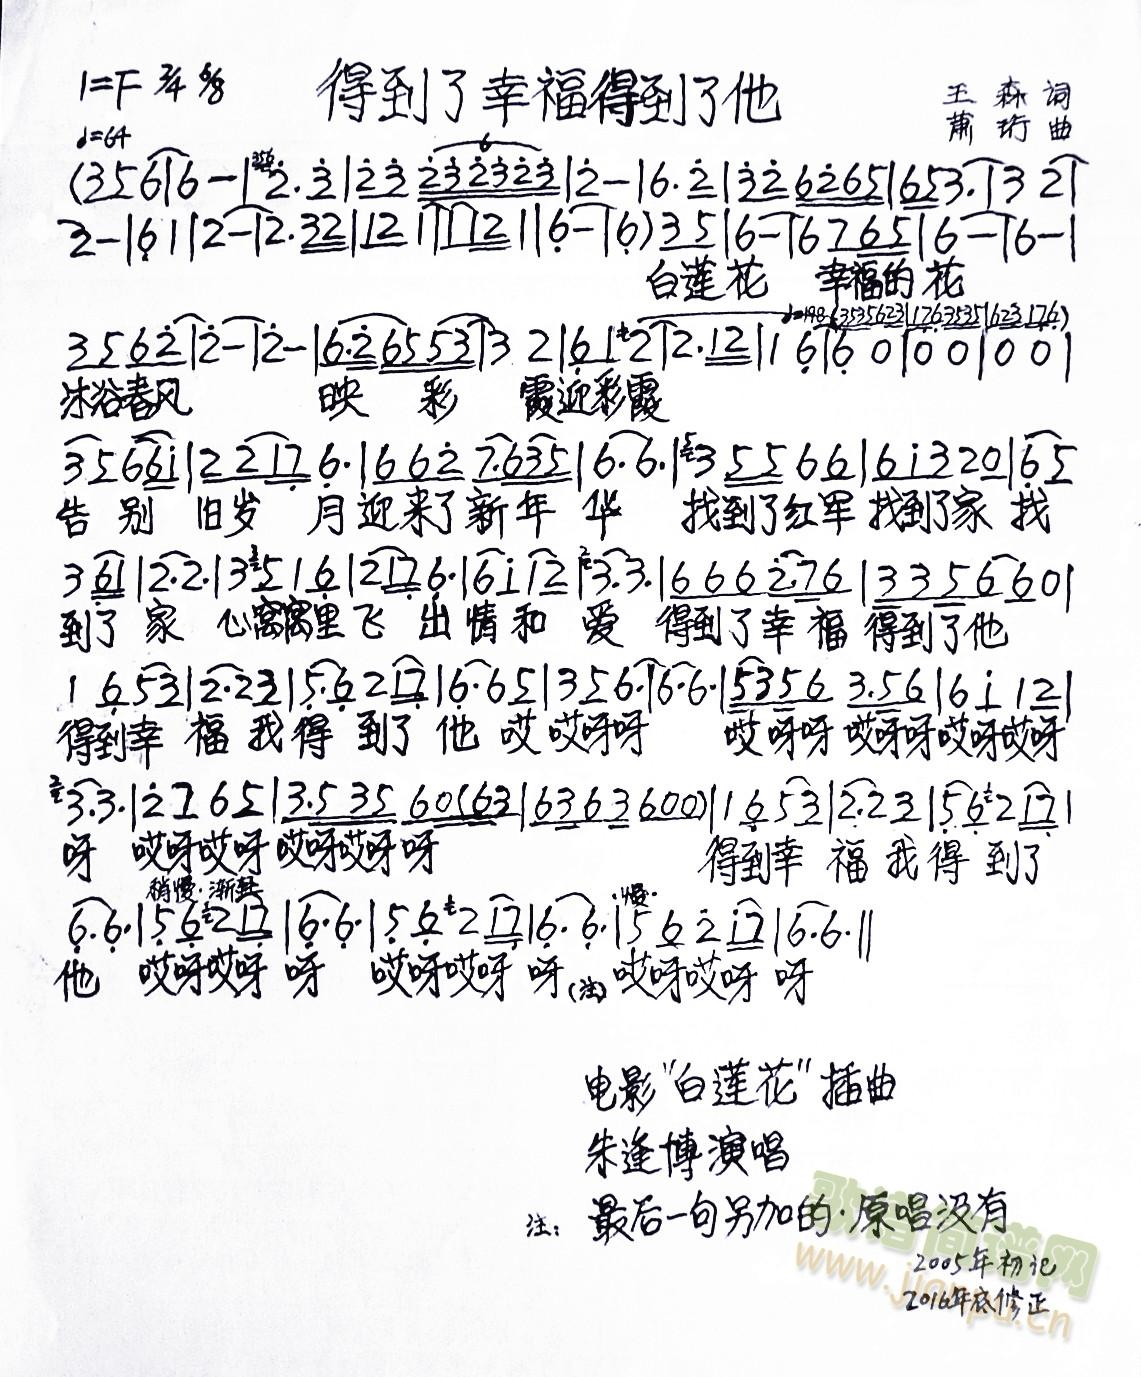 1=F 2/4 6/8 得到了幸福得到了他
王森 词
萧珩 曲
♩=64
(3 5 6|6 -|2·3|2 3 2 3 2 3 2 3|2 -|6·2|3 2 6 2 6 5|6 5 3·|3 2|
2 -|6 1|2 -|2·3 2|1 2 1|1 1 2 1|6 -|6) 3 5|6 -|6 7 6 5|6 -|6 -|
白莲花 幸福的花
♩=198 (3 5 3 5 6 2 3|1 7 6 3 5 3 5|6 2 3 1 7 6)
3 5 6 2|2 -|2 -|6·2 6 5 5 3|3 2|6 1 2|2·1 2|1 6|6 0|0 0|0 0|
沐浴春风 映彩霞迎彩霞
3 5 6 6 i|2 2 1 7 6·|6 6 2 7·6 3 5|6·6·|3 5 5 6 6|6 i 3 2 0|6 5
告别旧岁月迎来了新年华 找到了红军找到了家找
3 6 1|2·2·|3 5 1 6|2 1 7 6·|6 i 1 2|3·3·|6 6 6 2·7 6|3 3 5 6 6 0|
到了家 心窝窝里飞出情和爱 得到了幸福得到了他
1 6 5 3|2·2 3|5·6 2 1 7|6·6 5|3 5 6·|6·6·|5 3 5 6 3·5 6|6 i 1 2|
得到幸福我得到了他哎哎呀呀 哎呀呀哎呀呀哎呀哎呀
3·3·|2 7 6 5|3·5 3 5 6 0(6 3|6 3 6 3 6 0 0)|1 6 5 3|2·2 3|5 6 2 1 7|
呀 哎呀哎呀哎呀哎呀呀 得到幸福我得到了
稍慢·渐慢 慢·
6·6·|5 6 2 1 7|6·6·|5 6 2 1 7|6·6·|5 6 2 1 7|6·6·‖
他 哎呀哎呀呀 哎呀哎呀呀(注)哎呀哎呀呀
电影"白莲花"插曲
朱逢博演唱
注: 最后一句另加的·原唱没有
2005年初记
2016年底修正
歌谱简谱网
www.jianpu.cn